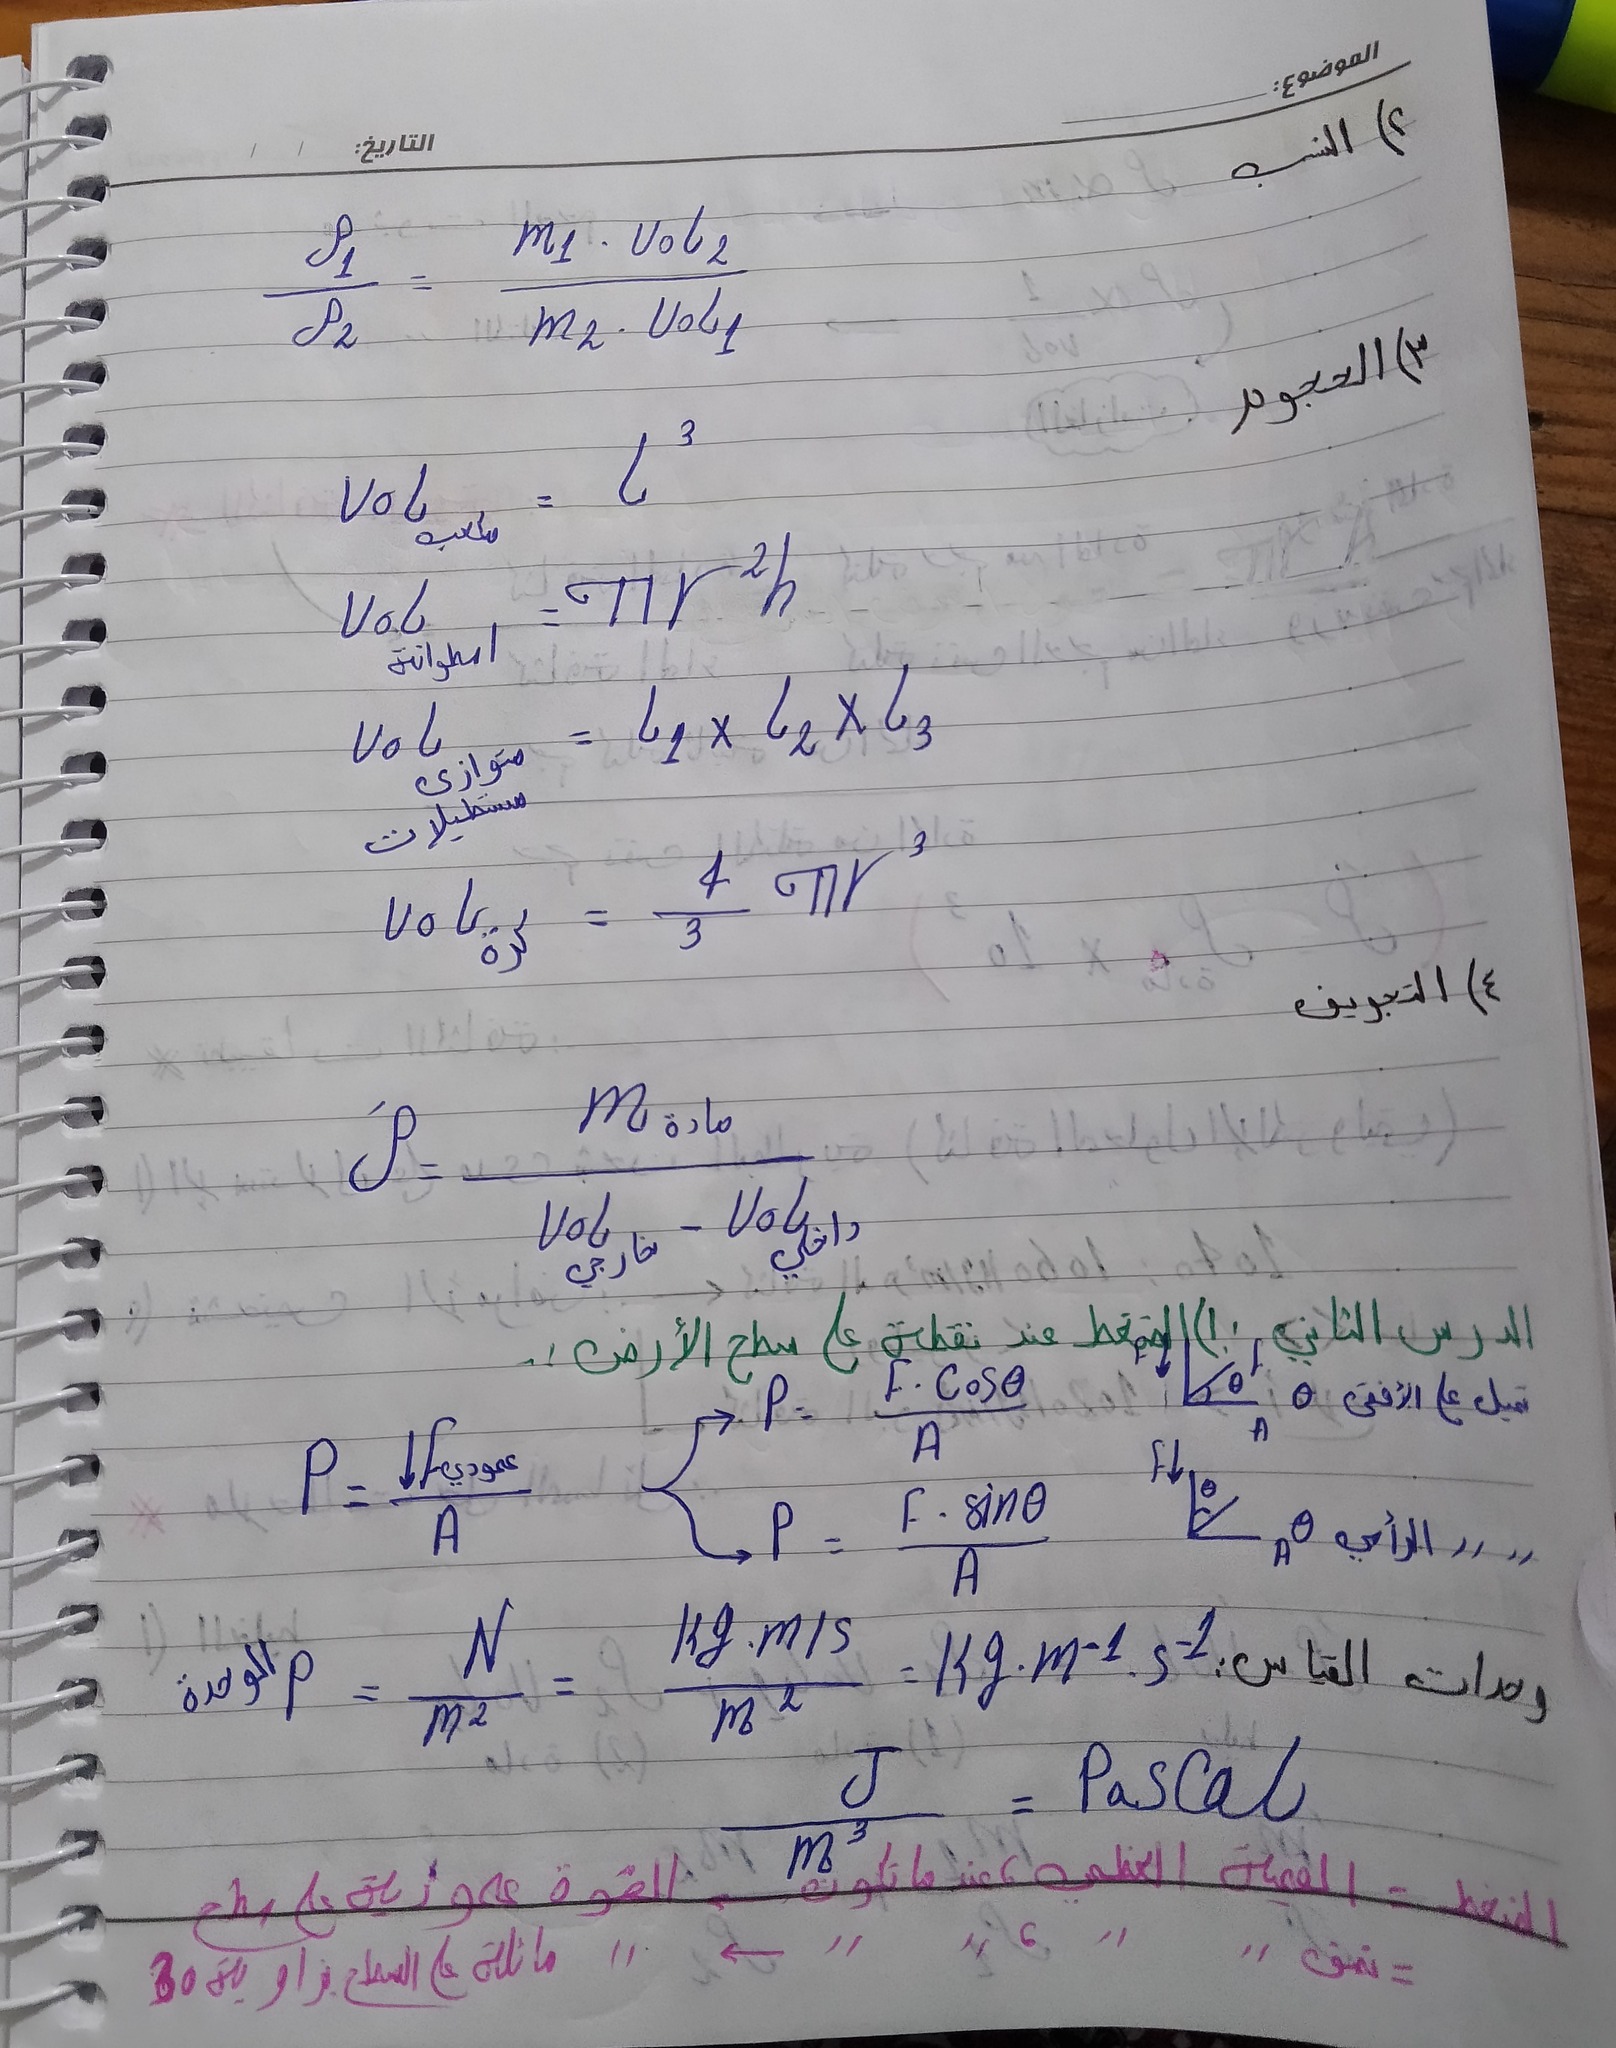 الموضوع:
التاريخ: / /
٢) النسب
ρ1/ρ2 = m1 . Vol2 / m2 . Vol1
٣) الحجوم
Vol مكعب = L³
Vol اسطوانة = πr²h
Vol متوازى مستطيلات = L1 x L2 x L3
Vol كرة = 4/3 πr³
٤) التجويف
ρ́ = m مادة / Vol خارجي - Vol داخلي
الدرس الثاني: ١) الضغط عند نقطة على سطح الأرض:
P = F . Cosθ / A θ تميل على الأفقى
P = ↓F عمودي / A
P = F . sinθ / A θ 〃 〃 الرأسي
F θ A
F↓ θ A
وحدات القياس: P الوحدة = N/m² = Kg.m/s / m² = Kg.m-1.s-1
J/m³ = Pascal
الضغط = القيمة العظمى، عندما تكون القوة عمودية على سطح
= نصف 〃 〃 ، 〃 〃 ← 〃 مائلة على السطح بزاوية 30